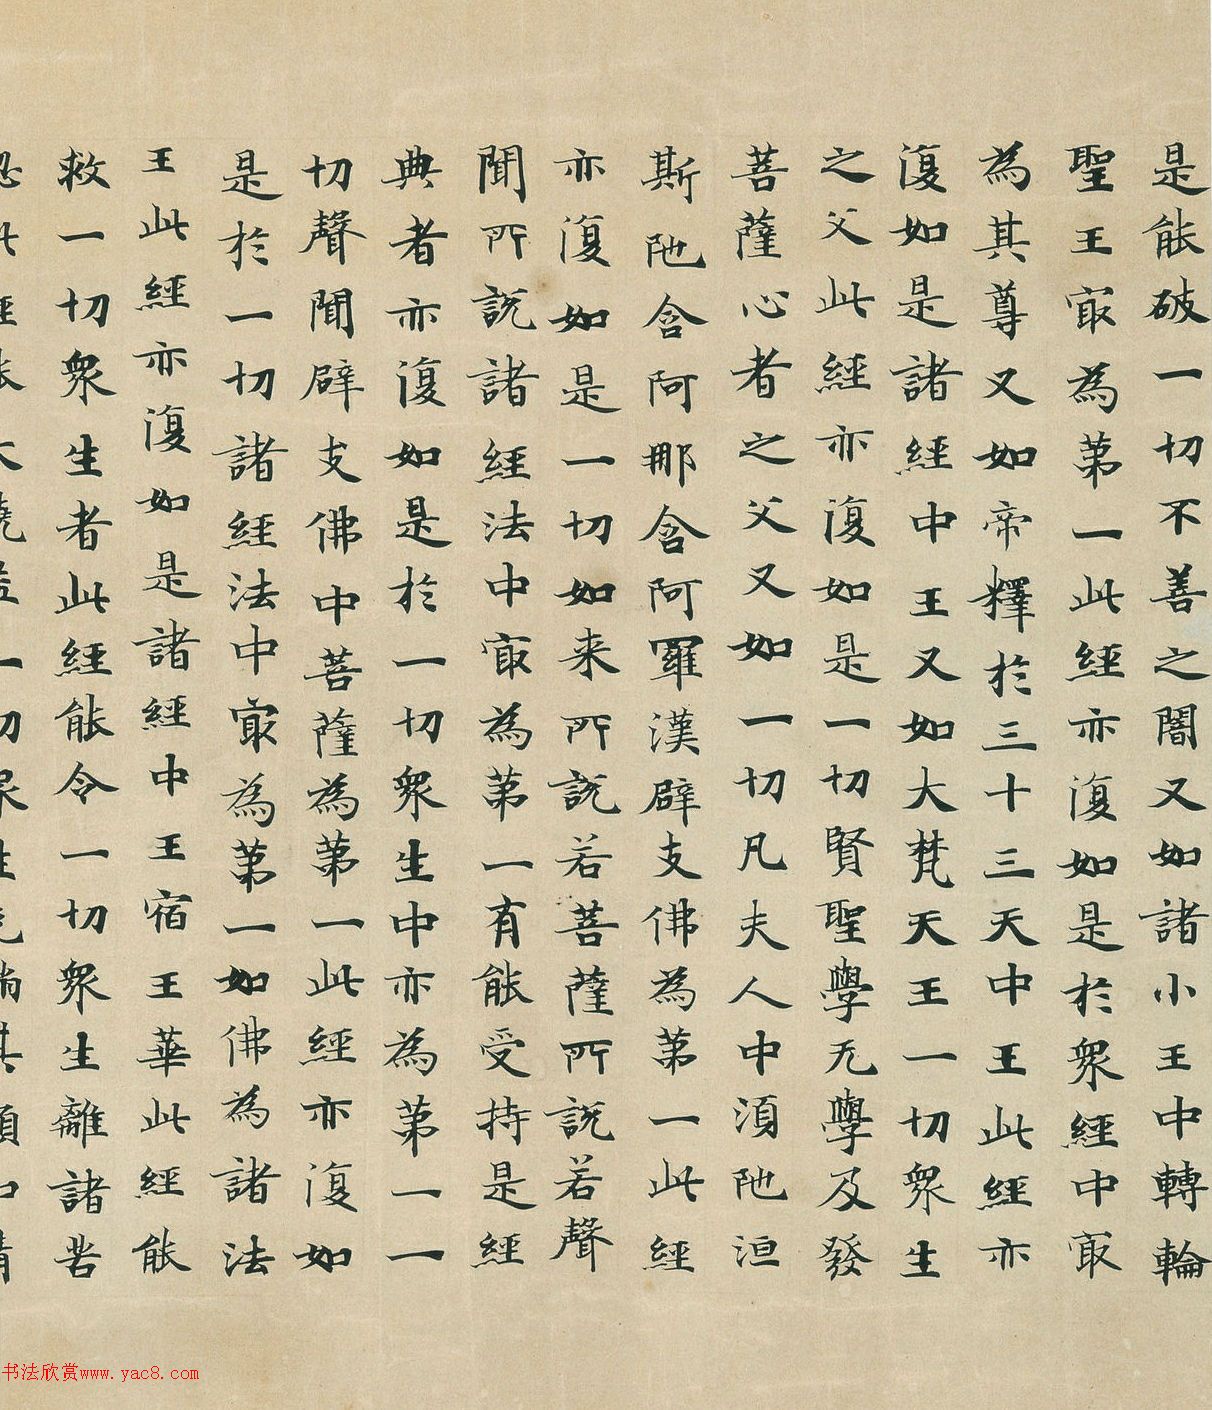 是能破一切不善之闇又如諸小王中轉輪
聖王冣為第一此經亦復如是於眾經中冣
為其尊又如帝釋於三十三天中王此經亦
復如是諸經中王又如大梵天王一切眾生
之父此經亦復如是一切賢聖學无學及發
菩薩心者之父又如一切凡夫人中湏陁洹
斯陁含阿那含阿羅漢辟支佛為第一此經
亦復如是一切如来所說若菩薩所說若聲
聞所說諸經法中冣為第一有能受持是經
典者亦復如是於一切眾生中亦為第一一
切聲聞辟支佛中菩薩為第一此經亦復如
是於一切諸經法中冣為第一如佛為諸法
王此經亦復如是諸經中王宿王華此經能
救一切眾生者此經能令一切眾生離諸苦
书法欣赏www.yac8.com